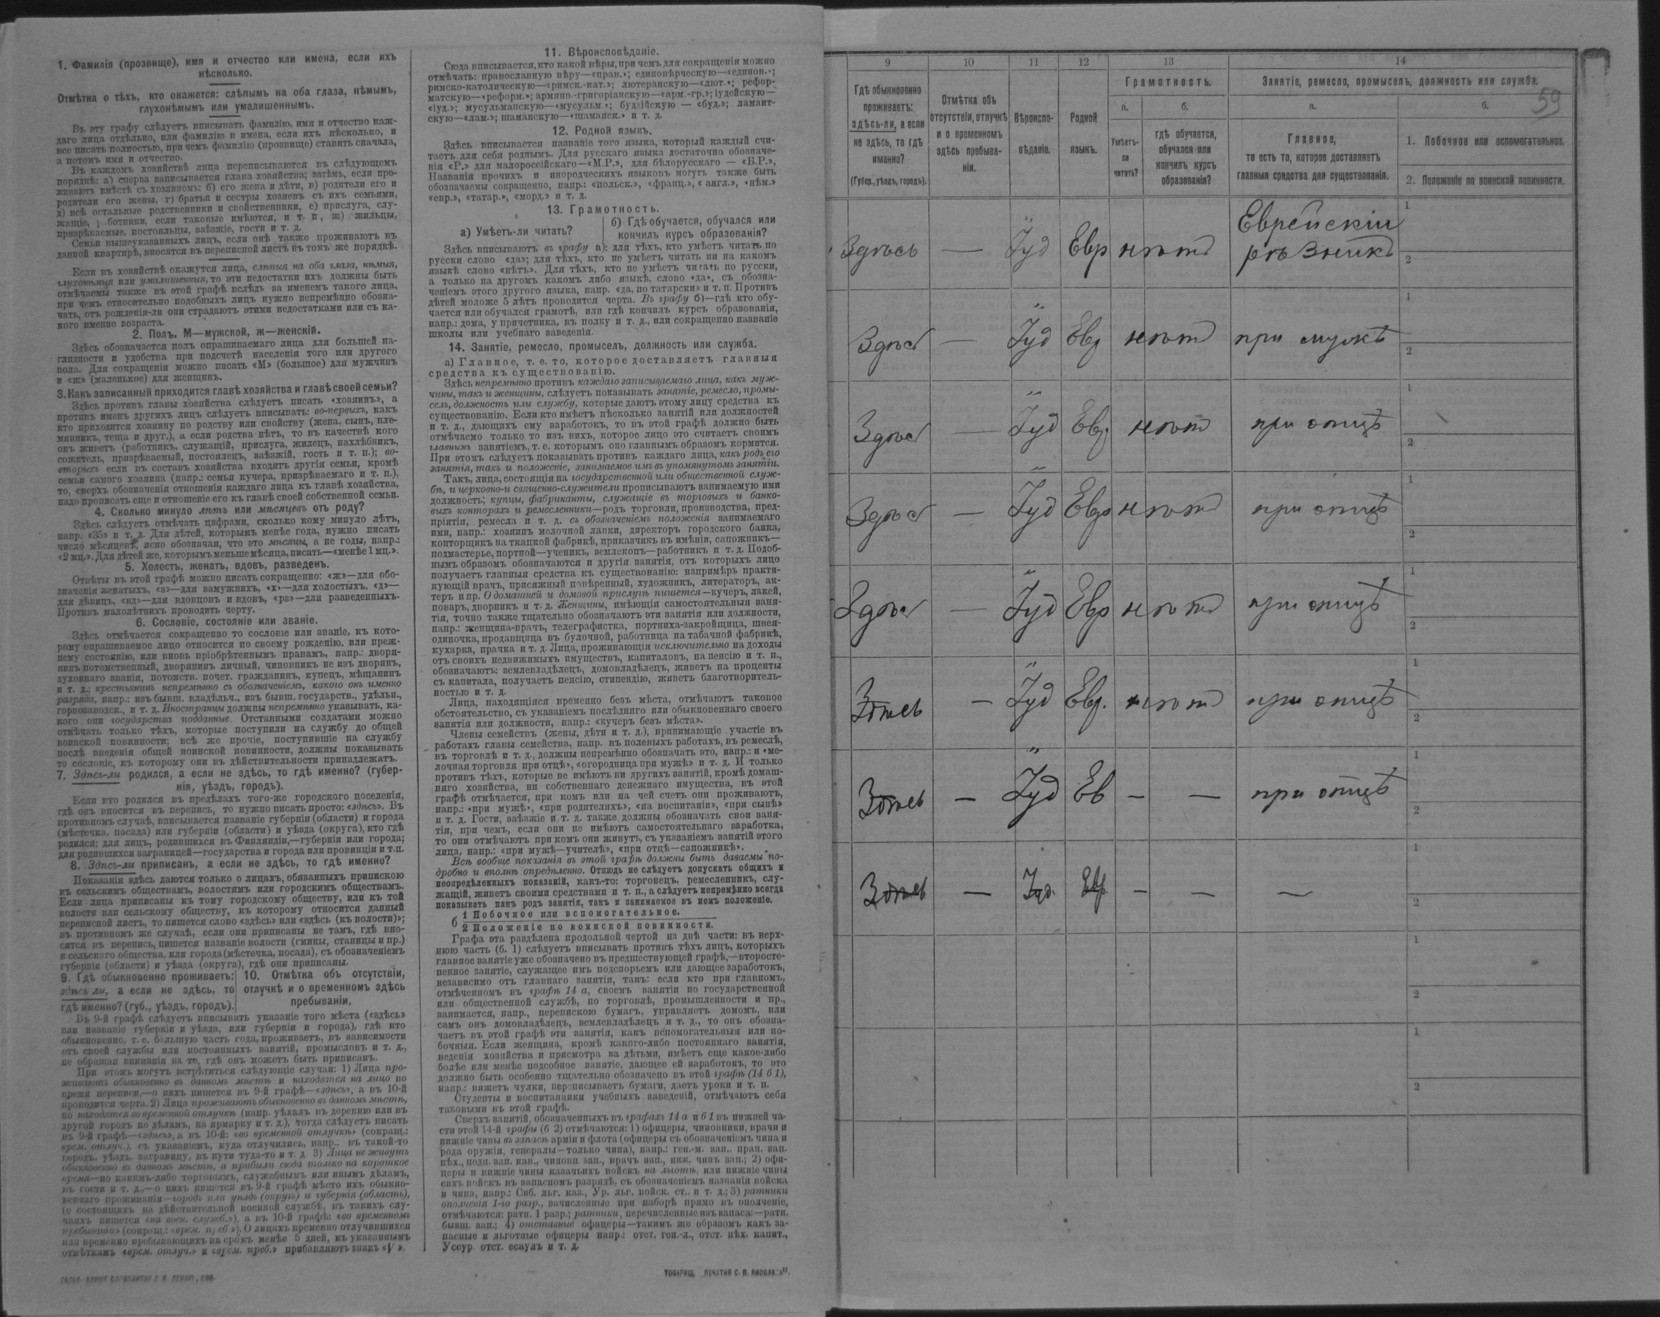 1. Фамилія (прозвище), имя и отчество или имена, если ихъ
нѣсколько.
Отмѣтка о тѣхъ, кто окажется: слѣпымъ на оба глаза, нѣмымъ,
глухонѣмымъ или умалишеннымъ.
Въ эту графу слѣдуетъ вписывать фамилію, имя и отчество каж-
даго лица отдѣльно, или фамилію и имена, если ихъ нѣсколько, и
все писать полностью, при чемъ фамилію (прозвище) ставить сначала,
а потомъ имя и отчество.
Въ каждомъ хозяйствѣ лица переписываются въ слѣдующемъ
порядкѣ: а) сперва записывается глава хозяйства; затѣмъ, если про-
живаютъ вмѣстѣ съ хозяиномъ: б) его жена и дѣти, в) родители его и
родители его жены, г) братья и сестры хозяевъ съ ихъ семьями,
д) всѣ остальные родственники и свойственники, е) прислуга, слу-
жащіе, работники, если таковые имѣются, и т. п., ж) жильцы,
призрѣваемые, постояльцы, заѣзжіе, гости и т. д.
Семьи вышеуказанныхъ лицъ, если онѣ также проживаютъ въ
данной квартирѣ, вносятся въ переписной листъ въ томъ же порядкѣ.
Если въ хозяйствѣ окажутся лица, слѣпыя на оба глаза, нѣмыя,
глухонѣмыя или умалишенныя, то эти недостатки ихъ должны быть
отмѣчаемы также въ этой графѣ вслѣдъ за именемъ такого лица,
при чемъ относительно подобныхъ лицъ нужно непремѣнно обозна-
чать, отъ рожденія-ли они страдаютъ этими недостатками или съ ка-
кого именно возраста.
2. Полъ. М—мужской, ж—женскій.
Здѣсь обозначается полъ опрашиваемаго лица для большей на-
глядности и удобства при подсчетѣ населенія того или другого
пола. Для сокращенія можно писать «М» (большое) для мужчинъ
и «ж» (маленькое) для женщинъ.
3. Какъ записанный приходится главѣ хозяйства и главѣ своей семьи?
Здѣсь противъ главы хозяйства слѣдуетъ писать «хозяинъ», а
противъ именъ другихъ лицъ слѣдуетъ вписывать: во-первыхъ, какъ
кто приходится хозяину по родству или свойству (жена, сынъ, пле-
мянникъ, теща и друг.), а если родства нѣтъ, то въ качествѣ кого
онъ живетъ (работникъ, служащій, прислуга, жилецъ, нахлѣбникъ,
сожитель, призрѣваемый, постоялецъ, заѣзжій, гость и т. п.); во-
вторыхъ если въ составъ хозяйства входятъ другія семьи, кромѣ
семьи самого хозяина (напр.: семья кучера, призрѣваемаго и т. п.),
то, сверхъ обозначенія отношенія каждаго лица къ главѣ хозяйства,
надо прописать еще и отношеніе его къ главѣ своей собственной семьи.
4. Сколько минуло лѣтъ или мѣсяцевъ отъ роду?
Здѣсь слѣдуетъ отмѣчать цифрами, сколько кому минуло лѣтъ,
напр. «35» и т. д. Для дѣтей, которымъ менѣе года, нужно писать
число мѣсяцевъ, ясно обозначая, что это мѣсяцы, а не годы, напр.:
«2 мц.». Для дѣтей же, которымъ меньше мѣсяца, писать—«менѣе 1 мц.».
5. Холостъ, женатъ, вдовъ, разведенъ.
Отвѣты въ этой графѣ можно писать сокращенно: «ж»—для обо-
значенія женатыхъ, «з»—для замужнихъ, «х»—для холостыхъ, «д»—
для дѣвицъ, «вд»—для вдовцовъ и вдовъ, «рз»—для разведенныхъ.
Противъ малолѣтнихъ проводить черту.
6. Сословіе, состояніе или званіе.
Здѣсь отмѣчается сокращенно то сословіе или званіе, къ кото-
рому опрашиваемое лицо относится по своему рожденію, или преж-
нему состоянію, или вновь пріобрѣтеннымъ правамъ, напр.: дворя-
нинъ потомственный, дворянинъ личный, чиновникъ не изъ дворянъ,
духовнаго званія, потомств. почет. гражданинъ, купецъ, мѣщанинъ
и т. д.; крестьянинъ непремѣнно съ обозначеніемъ, какого онъ именно
разряда, напр.: изъ бывш. владѣльч., изъ бывш. государств., удѣльн.,
горнозаводск., и т. д. Иностранцы должны непремѣнно указывать, ка-
кого они государства подданные. Отставными солдатами можно
отмѣчать только тѣхъ, которые поступили на службу до общей
воинской повинности; всѣ же прочіе, поступившіе на службу
послѣ введенія общей воинской повинности, должны показывать
то сословіе, къ которому они въ дѣйствительности принадлежатъ.
7. Здѣсь-ли родился, а если не здѣсь, то гдѣ именно? (губер-
нія, уѣздъ, городъ).
Если кто родился въ предѣлахъ того-же городского поселенія,
гдѣ онъ вносится въ перепись, то нужно писать просто: «здѣсь». Въ
противномъ случаѣ, вписывается названіе губерніи (области) и города
(мѣстечка, посада) или губерніи (области) и уѣзда (округа), кто гдѣ
родился; для лицъ, родившихся въ Финляндіи,—губерніи или города;
для родившихся заграницей—государства и города или провинціи и т.п.
8. Здѣсь-ли приписанъ, а если не здѣсь, то гдѣ именно?
Показанія здѣсь даются только о лицахъ, обязанныхъ припискою
къ сельскимъ обществамъ, волостямъ или городскимъ обществамъ.
Если лица приписаны къ тому городскому обществу, или къ той
волости или сельскому обществу, къ которому относится данный
переписной листъ, то пишется слово «здѣсь» или «здѣсь (къ волости)»;
въ противномъ же случаѣ, если они приписаны не тамъ, гдѣ вно-
сятся въ перепись, пишется названіе волости (гмины, станицы и пр.)
и сельскаго общества, или города (мѣстечка, посада), съ обозначеніемъ
губерніи (области) и уѣзда (округа), гдѣ они приписаны.
9. Гдѣ обыкновенно проживаетъ:
здѣсь-ли, а если не здѣсь, то
гдѣ именно? (губ., уѣздъ, городъ).
10. Отмѣтка объ отсутствіи,
отлучкѣ и о временномъ здѣсь
пребываніи.
Въ 9-й графѣ слѣдуетъ вписывать указаніе того мѣста («здѣсь»
или названіе губерніи и уѣзда, или губерніи и города), гдѣ кто
обыкновенно, т. е. большую часть года, проживаетъ, въ зависимости
отъ своей службы или постоянныхъ занятій, промысловъ и т. д.,
не обращая вниманія на то, гдѣ онъ можетъ быть приписанъ.
При этомъ могутъ встрѣтиться слѣдующіе случаи: 1) Лица про-
живаютъ обыкновенно въ данномъ мѣстѣ и находятся на лицо во
время переписи,—о нихъ пишется въ 9-й графѣ—«здѣсь», а въ 10-й
проводится черта. 2) Лица проживаютъ обыкновенно въ данномъ мѣстѣ,
но находятся во временной отлучкѣ (напр. уѣхалъ въ деревню или въ
другой городъ по дѣламъ, на ярмарку и т. д.), тогда слѣдуетъ писать
въ 9-й графѣ—«здѣсь», а въ 10-й: «во временной отлучкѣ» (сокращ.:
«врем. отлуч.»), съ указаніемъ, куда отлучились, напр.. въ такой-то
городъ, уѣздъ, заграницу, въ пути туда-то и т. д. 3) Лица не живутъ
обыкновенно въ данномъ мѣстѣ, а прибыли сюда только на короткое
время—по какимъ-либо торговымъ, служебнымъ или инымъ дѣламъ,
въ гости и т. д.,—о нихъ пишется въ 9-й графѣ мѣсто ихъ обыкно-
веннаго проживанія—городъ или уѣздъ (округъ) и губернія (область),
(о состоящихъ на дѣйствительной военной службѣ, въ такихъ слу-
чаяхъ пишется «на воен. службѣ»), а въ 10-й графѣ: «во временномъ
пребываніи» (сокращ.: «врем. преб.»). О лицахъ временно отлучившихся
или временно пребывающихъ на срокъ менѣе 5 дней, къ указаннымъ
отмѣткамъ «врем. отлуч.» и «врем. преб.» прибавляютъ знакъ «V».
11. Вѣроисповѣданіе.
Сюда вписывается, кто какой вѣры, при чемъ для сокращенія можно
отмѣчать: православную вѣру—«прав.»; единовѣрческую—«единов.»;
римско-католическую—«римск.-кат.»; лютеранскую—«лют.»; рефор-
матскую—«реформ.»; армяно-григоріанскую—«арм.-гр.»; іудейскую—
«іуд.»; мусульманскую—«мусульм.»; буддійскую — «буд.»; ламаит-
скую—«лам.»; шаманскую—«шаманск.» и т. д.
12. Родной языкъ.
Здѣсь вписывается названіе того языка, который каждый счи-
таетъ для себя роднымъ. Для русскаго языка достаточно обозначе-
нія «Р.» для малороссійскаго—«М.Р.», для бѣлорусскаго — «Б.Р.»,
Названія прочихъ и инородческихъ языковъ могутъ также быть
обозначаемы сокращенно, напр.: «польск.», «франц.», «англ.», «нѣм.»
«евр.», «татар.», «морд.» и т. д.
13. Грамотность.
а) Умѣетъ-ли читать?
б) Гдѣ обучается, обучался или
кончилъ курсъ образованія?
Здѣсь вписываютъ въ графу а): для тѣхъ, кто умѣетъ читать по
русски слово «да»; для тѣхъ, кто не умѣетъ читать ни на какомъ
языкѣ слово «нѣтъ». Для тѣхъ, кто не умѣетъ читать по русски,
а только на другомъ какомъ либо языкѣ, слово «да», съ обозна-
ченіемъ этого другого языка, напр. «да, по татарски» и т. п. Противъ
дѣтей моложе 5 лѣтъ проводится черта. Въ графу б)—гдѣ кто обу-
чается или обучался грамотѣ, или гдѣ кончилъ курсъ образованія,
напр.: дома, у причетника, въ полку и т. д., или сокращенно названіе
школы или учебнаго заведенія.
14. Занятіе, ремесло, промыселъ, должность или служба.
а) Главное, т. е. то, которое доставляетъ главныя
средства къ существованію.
Здѣсь непремѣнно противъ каждаго записываемаго лица, какъ муж-
чины, такъ и женщины, слѣдуетъ показывать занятіе, ремесло, промы-
селъ, должность или службу, которые даютъ этому лицу средства къ
существованію. Если кто имѣетъ нѣсколько занятій или должностей
и т. д., дающихъ ему заработокъ, то въ этой графѣ должно быть
отмѣчаемо только то изъ нихъ, которое лицо это считаетъ своимъ
главнымъ занятіемъ, т. е. которымъ оно главнымъ образомъ кормится.
При этомъ слѣдуетъ показывать противъ каждаго лица, какъ родъ его
занятія, такъ и положеніе, занимаемое имъ въ упомянутомъ занятіи.
Такъ, лица, состоящія на государственной или общественной служ-
бѣ, и церковно-и священно-служители прописываютъ занимаемую ими
должность; купцы, фабриканты, служащіе въ торговыхъ и банко-
выхъ конторахъ и ремесленники—родъ торговли, производства, пред-
пріятія, ремесла и т. д. съ обозначеніемъ положенія занимаемаго
ими, напр.: хозяинъ мелочной лавки, директоръ городского банка,
конторщикъ на ткацкой фабрикѣ, приказчикъ въ имѣніи, сапожникъ—
подмастерье, портной—ученикъ, землекопъ—работникъ и т. д. Подоб-
нымъ образомъ обозначаются и другія занятія, отъ которыхъ лицо
получаетъ главныя средства къ существованію: напримѣръ практи-
кующій врачъ, присяжный повѣренный, художникъ, литераторъ, ак-
теръ и пр. О домашней и домовой прислугѣ пишется—кучеръ, лакей,
поваръ, дворникъ и т. д. Женщины, имѣющія самостоятельныя заня-
тія, точно также тщательно обозначаютъ эти занятія или должности,
напр.: женщина-врачъ, телеграфистка, портниха-закройщица, швея-
одиночка, продавщица въ булочной, работница на табачной фабрикѣ,
кухарка, прачка и т. д. Лица, проживающія исключительно на доходы
отъ своихъ недвижимыхъ имуществъ, капиталовъ, на пенсію и т. п.,
обозначаютъ: землевладѣлецъ, домовладѣлецъ, живетъ на проценты
съ капитала, получаетъ пенсію, стипендію, живетъ благотворитель-
ностью и т. д.
Лица, находящіяся временно безъ мѣста, отмѣчаютъ таковое
обстоятельство, съ указаніемъ послѣдняго или обыкновеннаго своего
занятія или должности, напр.: «кучеръ безъ мѣста».
Члены семействъ (жены, дѣти и т. д.), принимающіе участіе въ
работахъ главы семейства, напр. въ полевыхъ работахъ, въ ремеслѣ,
въ торговлѣ и т. д., должны непремѣнно обозначать это, напр.: и «ме-
лочная торговля при отцѣ», «огородница при мужѣ» и т. д. И только
противъ тѣхъ, которые не имѣютъ ни другихъ занятій, кромѣ домаш-
няго хозяйства, ни собственнаго денежнаго имущества, въ этой
графѣ отмѣчается, при комъ или на чей счетъ они проживаютъ,
напр.: «при мужѣ», «при родителяхъ», «на воспитаніи», «при сынѣ»
и т. д. Гости, заѣзжіе и т. д. также должны обозначать свои заня-
тія, при чемъ, если они не имѣютъ самостоятельнаго заработка,
то они отмѣчаютъ при комъ они живутъ, съ указаніемъ занятій этого
лица, напр.: «при мужѣ—учителѣ», «при отцѣ—сапожникѣ».
Всѣ вообще показанія въ этой графѣ должны быть даваемы по-
дробно и вполнѣ опредѣленно. Отнюдь не слѣдуетъ допускать общихъ и
неопредѣленныхъ показаній, какъ-то: торговецъ, ремесленникъ, слу-
жащій, живетъ своими средствами и т. п., а слѣдуетъ непремѣнно всегда
показывать какъ родъ занятія, такъ и занимаемое въ немъ положеніе.
б 1 Побочное или вспомогательное.
2 Положеніе по воинской повинности.
Графа эта раздѣлена продольной чертой на двѣ части: въ верх-
нюю часть (б. 1) слѣдуетъ вписывать противъ тѣхъ лицъ, которыхъ
главное занятіе уже обозначено въ предшествующей графѣ,—второсте-
пенное занятіе, служащее имъ подспорьемъ или дающее заработокъ,
независимо отъ главнаго занятія, такъ: если кто при главномъ,
отмѣченномъ въ графѣ 14 а, своемъ занятіи по государственной
или общественной службѣ, по торговлѣ, промышленности и пр.,
занимается, напр., перепискою бумагъ, управляетъ домомъ, или
самъ онъ домовладѣлецъ, землевладѣлецъ и т. д., то онъ обозна-
чаетъ въ этой графѣ эти занятія, какъ вспомогательныя или по-
бочныя. Если женщина, кромѣ какого-либо постояннаго занятія,
веденія хозяйства и присмотра за дѣтьми, имѣетъ еще какое-либо
болѣе или менѣе подсобное занятіе, дающее ей заработокъ, то это
должно быть особенно тщательно обозначено въ этой графѣ (14 б 1),
напр.: вяжетъ чулки, переписываетъ бумаги, даетъ уроки и т. п.
Студенты и воспитанники учебныхъ заведеній, отмѣчаютъ себя
таковыми въ этой графѣ.
Сверхъ занятій, обозначенныхъ въ графахъ 14 а и б 1 въ нижней ча-
сти этой 14-й графы (б 2) отмѣчаются: 1) офицеры, чиновники, врачи и
нижніе чины въ запасѣ арміи и флота (офицеры съ обозначеніемъ чина и
рода оружія, генералы—только чина), напр.: ген.-м. зап., прап. зап.
пѣх., подп. зап. кав., чиновн. зап., врачъ зап., ниж. чинъ зап.; 2) офи-
церы и нижніе чины казачьихъ войскъ на льготѣ, или нижніе чины
сихъ войскъ въ запасномъ разрядѣ, съ обозначеніемъ названія войска
и чина, напр.: Сиб. льг. каз., Ур. льг. войск. ст. и т. д.; 3) ратники
ополченія 1-го разр., зачисленные при наборѣ прямо въ ополченіе,
отмѣчаются: ратн. 1 разр.; ратники, перечисленные изъ запаса:—ратн.
бывш. зап.; 4) отставные офицеры—такимъ же образомъ какъ за-
пасные и льготные офицеры напр.: отст. ген.-л., отст. пѣх. капит.,
Уссур. отст. есаулъ и т. д.
9 10 11 12 13 14
59
Гдѣ обыкновенно
проживаетъ:
здѣсь-ли, а если
не здѣсь, то гдѣ
именно?
(Губер., уѣздъ, городъ).
Отмѣтка объ
отсутствіи, отлучкѣ
и о временномъ
здѣсь пребыва-
ніи.
Вѣроиспо-
вѣданіе.
Родной
языкъ.
Грамотность.
а. б.
Умѣетъ-
ли
читать?
гдѣ обучается,
обучался или
кончилъ курсъ
образованія?
Занятіе, ремесло, промыселъ, должность или служба.
а. б.
Главное,
то есть то, которое доставляетъ
главныя средства для существованія.
1. Побочное или вспомогательное.
2. Положеніе по воинской повинности.
Здѣсь — Іуд Евр нѣтъ Еврейскій рѣзникъ 1 2
Здѣсь — Іуд Евр нѣтъ при мужѣ 1 2
Здѣсь — Іуд Евр. нѣтъ при отцѣ 1 2
Здѣсь — Іуд Евр нѣтъ при отцѣ 1 2
Здѣсь — Іуд Евр нѣтъ при отцѣ 1 2
Здѣсь — Іуд Евр. нѣтъ при отцѣ 1 2
Здѣсь — Іуд Ев — — при отцѣ 1 2
Здѣсь — Іуд. Евр — — — 1 2
1 2
1 2